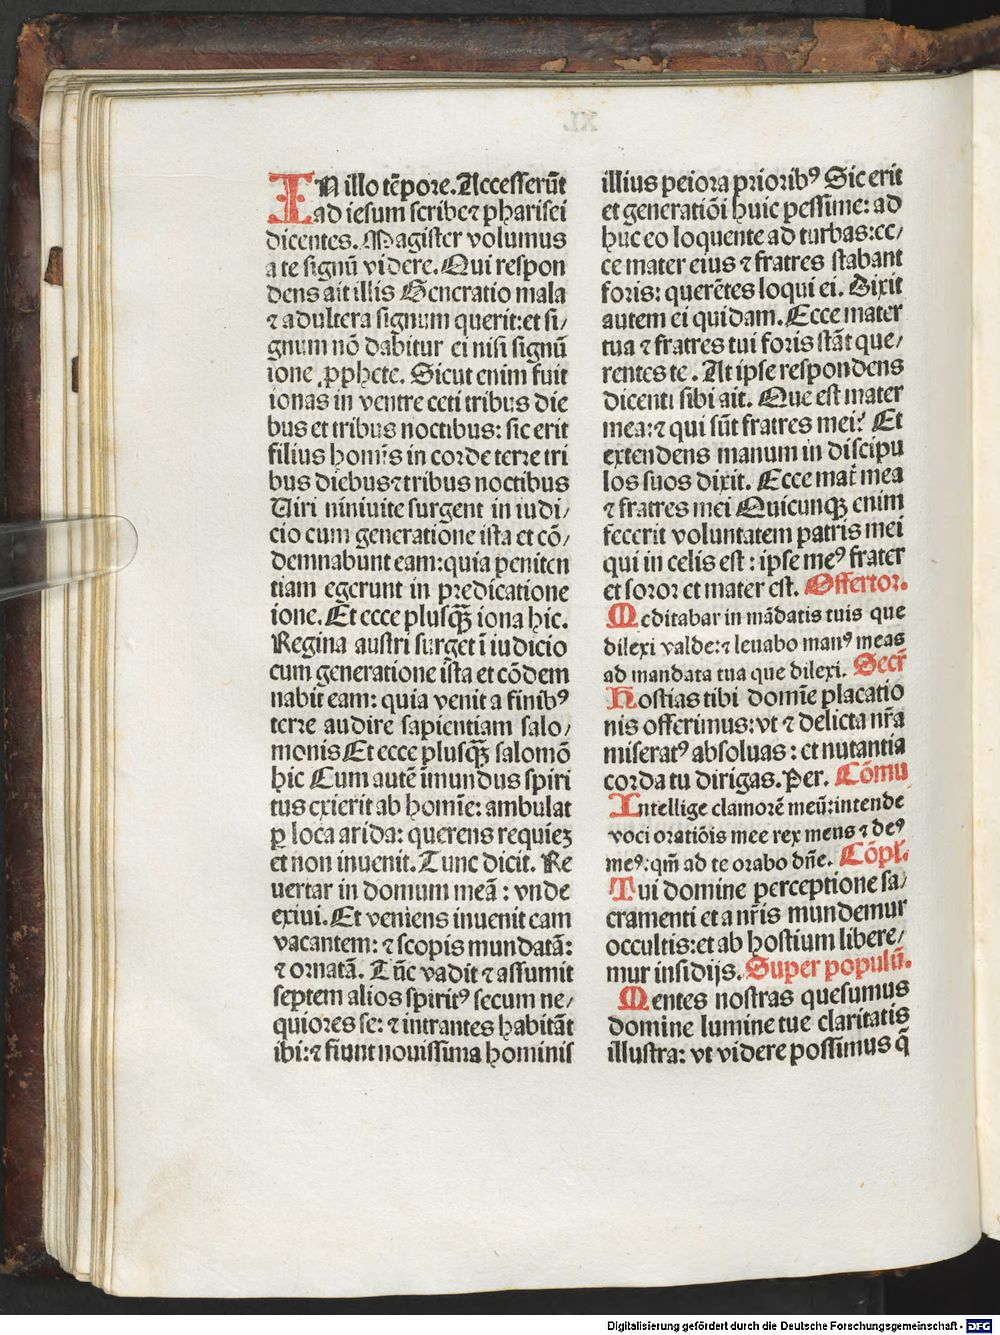 IN illo tēpore. Accesserūt
ad iesum scribe ⁊ pharisei
dicentes. Magister volumus
a te signū videre. Qui respon
dens ait illis Generatio mala
⁊ adultera signum querit: et si/
gnum nō dabitur ei nisi signū
ione ꝓphete. Sicut enim fuit
ionas in ventre ceti tribus die
bus et tribus noctibus: sic erit
filius homīs in corde terre tri
bus diebus ⁊ tribus noctibus
Uiri niniuite surgent in iudi/
cio cum generatione ista et cō/
demnabunt eam: quia peniten
tiam egerunt in predicatione
ione. Et ecce plusꝙ̄ iona hic.
Regina austri surget ī iudicio
cum generatione ista et cōdem
nabit eam: quia venit a finibꝰ
terre audire sapientiam salo/
monis Et ecce plusꝙ̄ salomō
hic Cum autē īmundus spiri
tus exierit ab homīe: ambulat
ꝑ loca arida: querens requieꝫ
et non inuenit. Tunc dicit. Re
uertar in domum meā: vnde
exiui. Et veniens inuenit eam
vacantem: ⁊ scopis mundatā:
⁊ ornatā. Tūc vadit ⁊ assumit
septem alios spiritꝰ secum ne/
quiores se: ⁊ intrantes habitāt
ibi: ⁊ fiunt nouissima hominis
illius peiora prioribꝰ Sic erit
et generatiōi huic pessime: ad
huc eo loquente ad turbas: ec/
ce mater eius ⁊ fratres stabant
foris: querētes loqui ei. Dixit
autem ei quidam. Ecce mater
tua ⁊ fratres tui foris stāt que/
rentes te. At ipse respondens
dicenti sibi ait. Que est mater
mea: ⁊ qui sūt fratres mei? Et
extendens manum in discipu
los suos dixit. Ecce mat̄ mea
⁊ fratres mei Quicunqꝫ enim
fecerit voluntatem patris mei
qui in celis est: ipse meꝰ frater
et soror et mater est. Offertor.
Meditabar in mādatis tuis que
dilexi valde: ⁊ leuabo manꝰ meas
ad mandata tua que dilexi. Secr̄
Hostias tibi domīe placatio
nis offerimus: vt ⁊ delicta nr̄a
miseratꝰ absoluas: et nutantia
corda tu dirigas. Per. Cōmu
Intellige clamorē meū: intende
voci oratiōis mee rex meus ⁊ deꝰ
meꝰ: qm̄ ad te orabo dn̄e. Cōpl.
Tui domine perceptione sa/
cramenti et a nr̄is mundemur
occultis: et ab hostium libere/
mur insidijs. Super populū.
Mentes nostras quesumus
domine lumine tue claritatis
illustra: vt videre possimus q̄
Digitalisierung gefördert durch die Deutsche Forschungsgemeinschaft - DFG